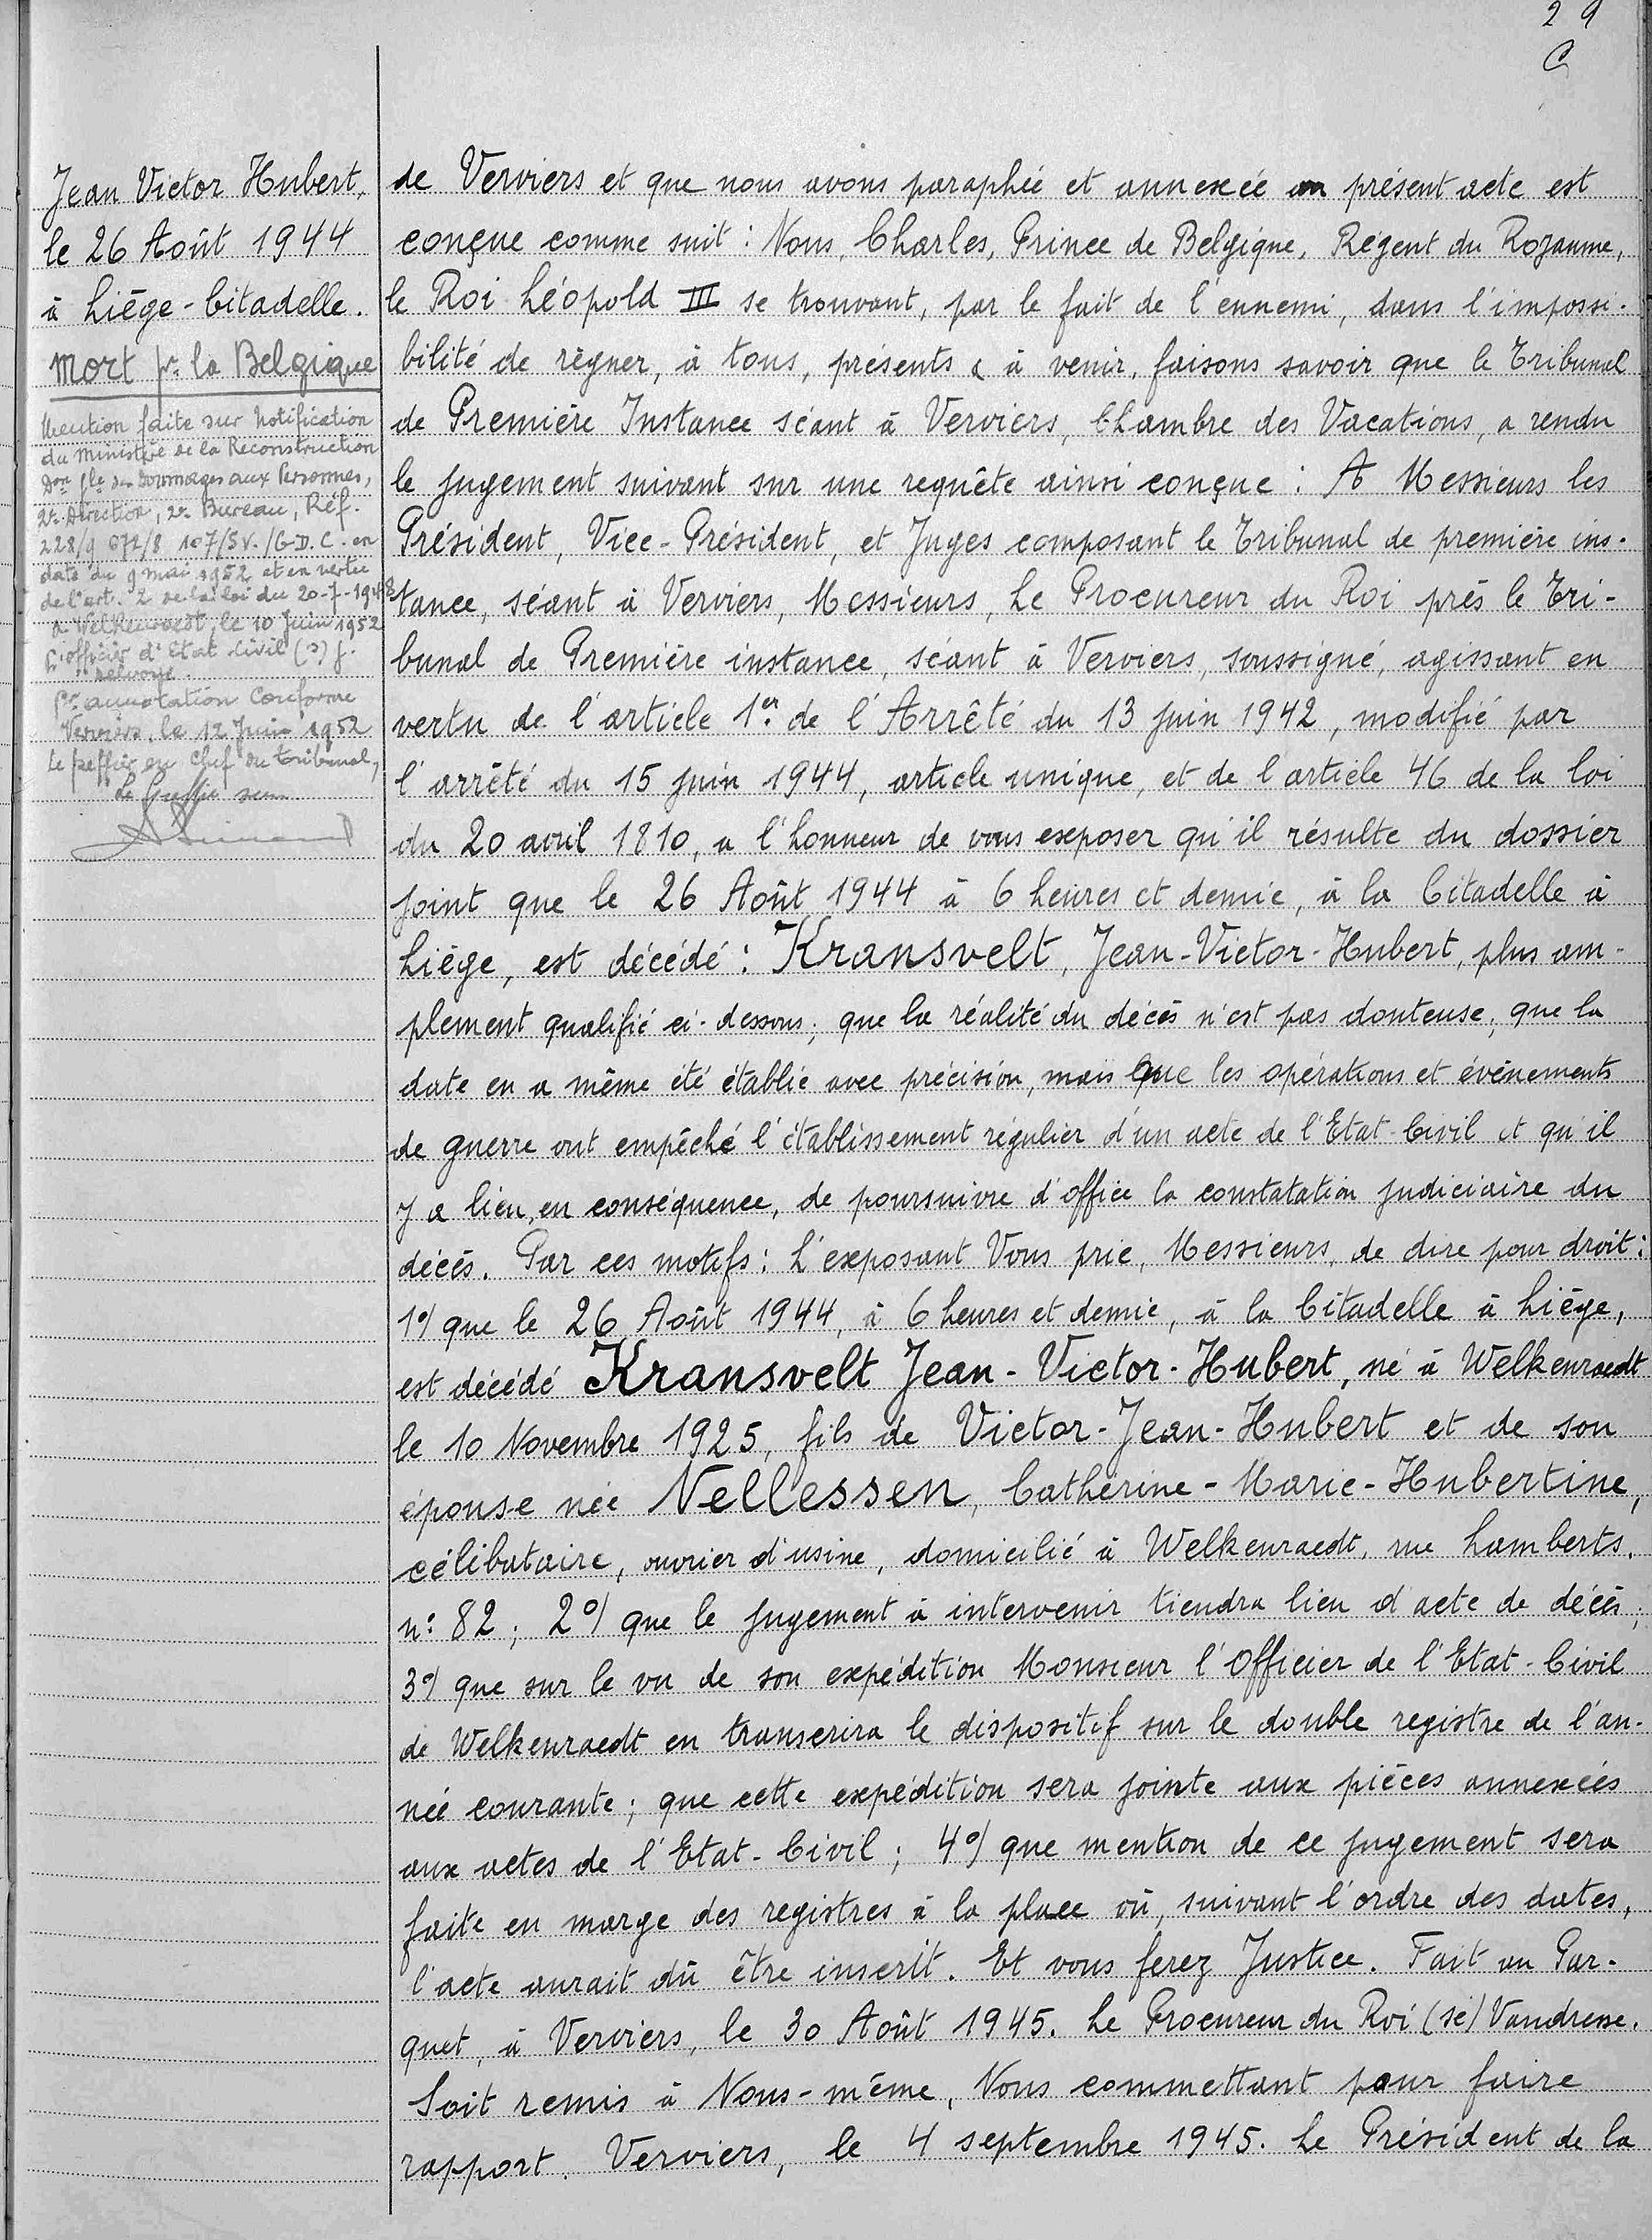 29
C
Jean Victor Hubert,
le 26 Août 1944
à Liège-Citadelle.
Mort pr. la Belgique
Mention faite sur Notification
du Ministère de la Reconstruction
Don gle des Dommages aux Personnes,
2e Direction, 2e Bureau, Réf.
228/9 672/8 107/5V./G-D.C. en
date du 9 mai 1952 et en vertu
de l'art. 2 de la loi du 20-7-1948
à Welkenraedt, le 10 Juin 1952
L'officier d'Etat Civil (s) J.
Delvoye.
Pr. annotation conforme
Verviers, le 12 Juin 1952
Le greffier en Chef du tribunal,
de Verviers et que nous avons paraphée et annexée au présent acte est
conçue comme suit : Nous, Charles, Prince de Belgique, Régent du Royaume,
le Roi Léopold III se trouvant, par le fait de l'ennemi, dans l'impossi-
bilité de règner, à tous, présents & à venir, faisons savoir que le Tribunal
de Première Instance séant à Verviers, Chambre des Vacations, a rendu
le jugement suivant sur une requête ainsi conçue : A Messieurs les
Président, Vice-Président, et Juges composant le Tribunal de première ins-
tance, séant à Verviers, Messieurs, Le Procureur du Roi près le Tri-
bunal de Première instance, séant à Verviers, soussigné, agissant en
vertu de l'article 1er de l'Arrêté du 13 juin 1942, modifié par
l'arrêté du 15 juin 1944, article unique, et de l'article 46 de la loi
du 20 avril 1810, a l'honneur de vous exposer qu'il résulte du dossier
joint que le 26 Août 1944 à 6 heures et demie, à la Citadelle à
Liège, est décédé : Kransvelt, Jean-Victor-Hubert, plus am-
plement qualifié ci-dessous; que la réalité du décès n'est pas douteuse; que la
date en a même été établie avec précision, mais que les opérations et évènements
de guerre ont empêché l'établissement régulier d'un acte de l'Etat-Civil et qu'il
y a lieu, en conséquence, de poursuivre d'office la constatation judiciaire du
décès. Par ces motifs : L'exposant Vous prie, Messieurs, de dire pour droit :
1°/ que le 26 Août 1944, à 6 heures et demie, à la Citadelle à Liège,
est décédé Kransvelt Jean-Victor-Hubert, né à Welkenraedt
le 10 Novembre 1925, fils de Victor-Jean-Hubert et de son
épouse née Nellessen, Cathérine-Marie-Hubertine,
célibataire, ouvrier d'usine, domicilié à Welkenraedt, rue Lamberts,
n: 82 ; 2°/ que le jugement à intervenir tiendra lieu d'acte de décès ;
3°/ que sur le vu de son expédition Monsieur l'Officier de l'Etat-Civil
de Welkenraedt en transcrira le dispositif sur le double registre de l'an-
née courante ; que cette expédition sera jointe aux pièces annexées
aux actes de l'Etat-Civil ; 4°/ que mention de ce jugement sera
faite en marge des registres à la place où, suivant l'ordre des dates,
l'acte aurait dû être inscrit. Et vous ferez Justice. Fait au Par-
quet, à Verviers, le 30 Août 1945. Le Procureur du Roi (sé) Vandresse.
Soit remis à Nous-même, Nous commettant pour faire
rapport. Verviers, le 4 septembre 1945. Le Président de la